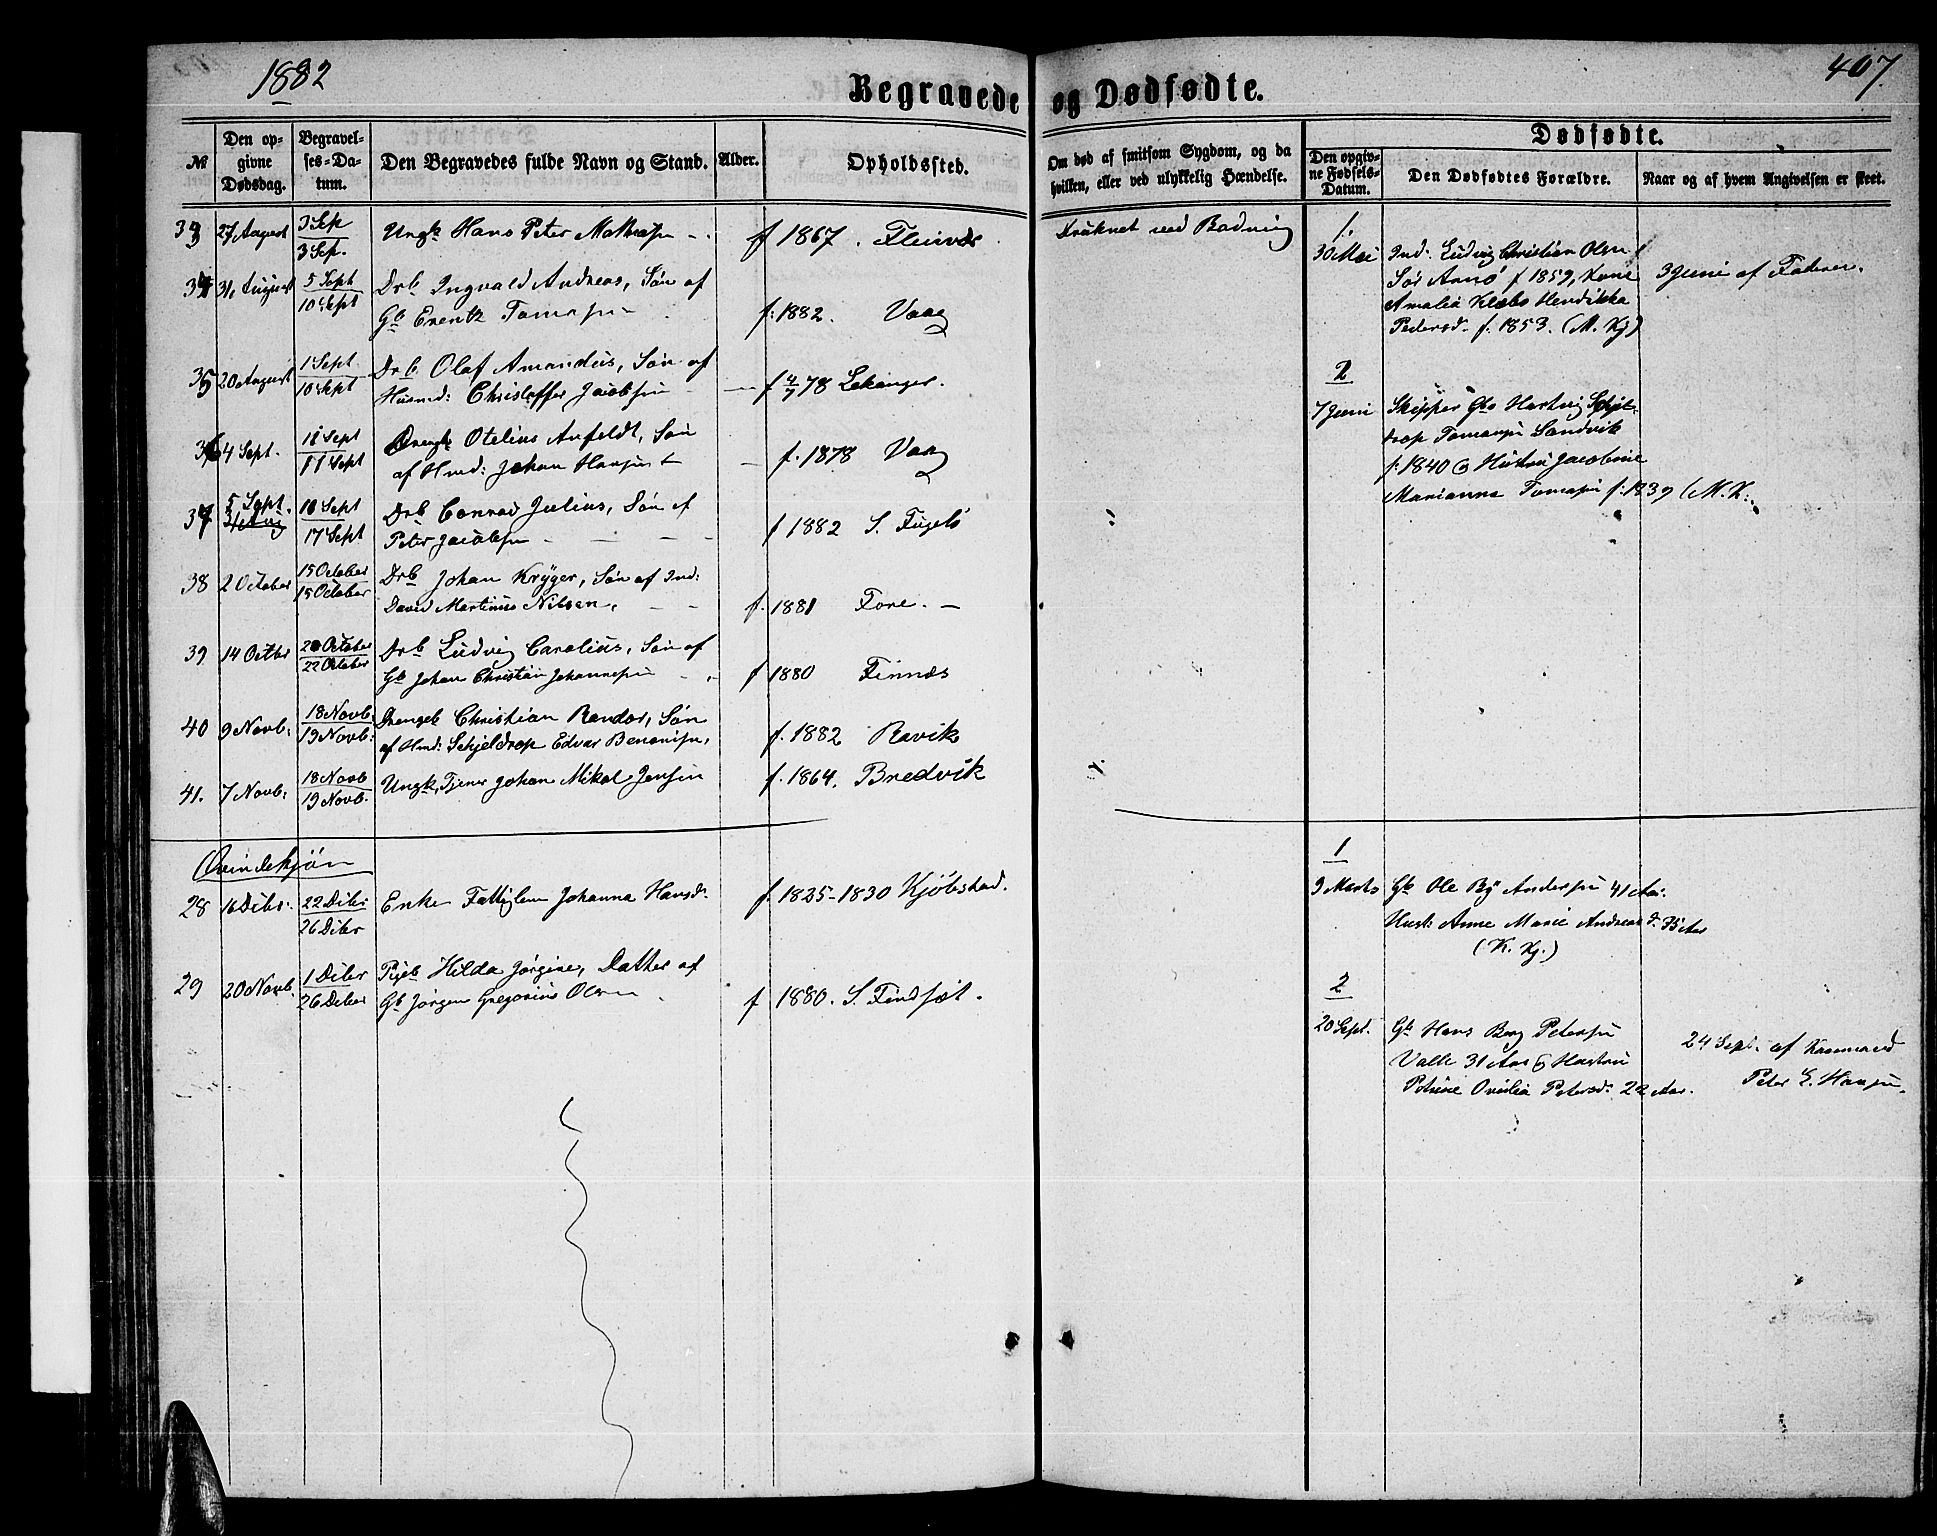 1882
Begravede og Dødfødte.
407.
No
Den opgivne Dødsdag.
Begravelses-Datum.
Den Begravedes fulde Navn og Stand.
Alder.
Opholdssted.
Om død af smitsom Sygdom, og da hvilken, eller ved ulykkelig Hændelse.
Dødfødte.
Den opgivne Fødsels-Datum.
Den Dødfødtes Forældre.
Naar og af hvem Angivelsen er skeet.
33 27 August 3 Sep Ungk Hans Peter f 1867. Fleinvær Druknet ved Badning
3 Sep.
34 31 August 5 Sept Drb Ingvald Andreas, Søn af
10 Sept Gb Erentz f: 1882. Vaag
35 20 August 1 Sept Drb Olaf Amandus, Søn af
10 Sept Husmd: Christoffer Jacobsen f 4/7 78 Lekanger.
36 4 Sept. Drengb Otelius Anfeldt, Søn
11 Sept af Hmd: Johan Hansen f. 1878 Vaag
37 5 Sept. 10 Sept Drb Conrad Julius, Søn af
17 Sept Peter Jacobsen f 1882 S. Fugelø
38 2 October 15 October Drb Johan Kryger, Søn af Ind:
15 October David Martinus Nilsen, f. 1881 Fore.
39 14 Octbr 20 October Drb Ludvig Carolius, Søn af
22 October Gb Johan Christian Johannesen f 1880 Finnæs
40 9 Novb: 18 Novb: Drengeb Christian Randor, Søn
19 Novb: af Hmd: Schjeldrop Edvar Benonisen, f. 1882 Ravik
41. 7 Novb: 18 Novb Ungk, Tjener Johan Mikal Jensen f. 1864. Bredvik
19 Novb.
Qvindekjøn
28 16 Dcbr: 22 Dcbr Enke Fattiglem Johanna Hansd: f. 1825-1830 Kjøbstad.
26 Dcbr
29 20 Novb. 1 Dcbr Pigeb Hilda Jørgine, Datter af
26 Dcbr Gb Jørgen Gregorius Olsen f 1880. S.
1.
30 Mai Ind: Ludvig Christian Olsen
Sør Arnø f 1859, Kone 3 Juni af Faderen.
Amalia Klæbo Hendrikka
Pedersd. f. 1853. (M. Kj)
2
7 Juni Skipper Gb Hartvig Schjel-
drop Tomassen Sandvik
f: 1840 & Hustru Jacobine
Marianna Tomasen f: 1839 (M. K:
1
9 Marts Gb Ole By Andersen 41 Aar.
Hust: Anne Marie Andreasd: 35 Aar
(K. Kj.)
2
20 Sept. Gb Hans Berg Petersen
Valle 31 Aar & Hustru 24 Sept. af
Petrine Ovidia Petersd: 22 Aar. Peter E. Hansen.